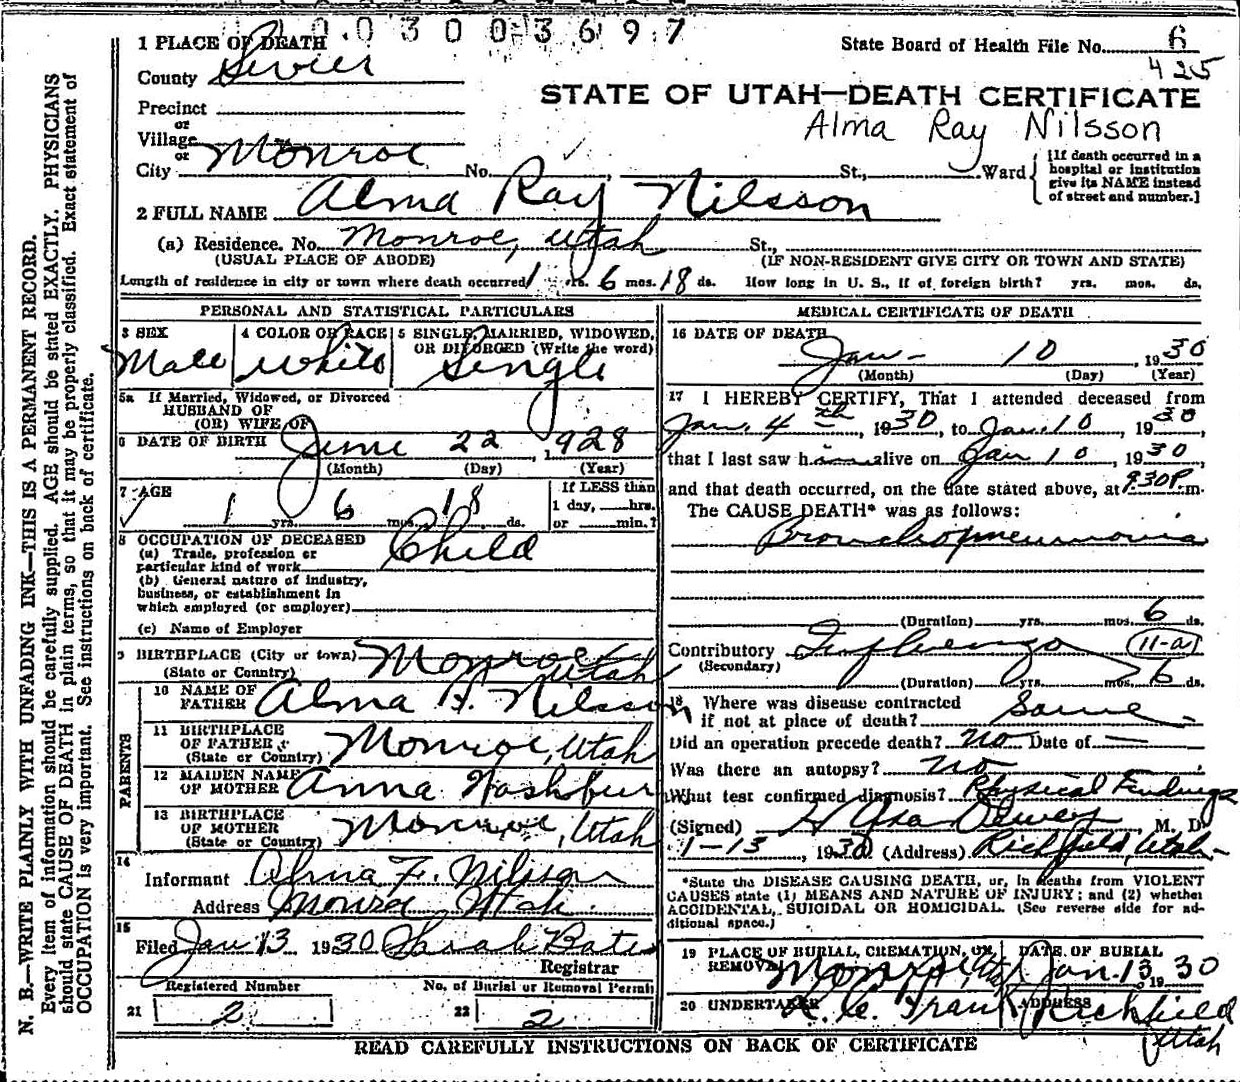 0.0 3 0 0 3 6 9 7
1 PLACE OF DEATH
State Board of Health File No. 6
425
County Sevier
STATE OF UTAH—DEATH CERTIFICATE
Precinct
or
Alma Ray Nilsson
Village
or
City Monroe No. , St., Ward
[If death occurred in a
hospital or institution
give its NAME instead
of street and number.]
2 FULL NAME Alma Ray Nilsson
(a) Residence. No. Monroe, Utah St.,
(USUAL PLACE OF ABODE) (IF NON-RESIDENT GIVE CITY OR TOWN AND STATE)
Length of residence in city or town where death occurred 1 yrs. 6 mos. 18 ds. How long in U. S., if of foreign birth? yrs. mos. ds.
PERSONAL AND STATISTICAL PARTICULARS
3 SEX 4 COLOR OR RACE 5 SINGLE, MARRIED, WIDOWED,
OR DIVORCED (Write the word)
Male White Single
5a If Married, Widowed, or Divorced
HUSBAND OF
(OR) WIFE OF
6 DATE OF BIRTH June 22, 1928
(Month) (Day) (Year)
7 AGE If LESS than
1 yrs. 6 mos. 18 ds. 1 day, hrs.
or min.?
8 OCCUPATION OF DECEASED
(a) Trade, profession or
particular kind of work Child
(b) General nature of industry,
business, or establishment in
which employed (or employer)
(c) Name of Employer
9 BIRTHPLACE (City or town) Monroe
(State or Country) Utah
PARENTS
10 NAME OF
FATHER Alma F. Nilsson
11 BIRTHPLACE
OF FATHER
(State or Country) Monroe, Utah
12 MAIDEN NAME
OF MOTHER Anna Washburn
13 BIRTHPLACE
OF MOTHER
(State or Country) Monroe, Utah
14
Informant Alma F. Nilsson
Address Monroe Utah.
15
Filed Jan 13 1930 Sarah Bates
Registrar
Registered Number No. of Burial or Removal Permit
21 2 22 2
MEDICAL CERTIFICATE OF DEATH
16 DATE OF DEATH
Jan- 10, 1930
(Month) (Day) (Year)
17 I HEREBY CERTIFY, That I attended deceased from
Jan. 4th, 1930, to Jan. 10, 1930
that I last saw him alive on Jan 10, 1930,
and that death occurred, on the date stated above, at 9.30P.m.
The CAUSE DEATH* was as follows:
Bronchopneumonia
(Duration) yrs. mos. 6 ds.
Contributory Influenza 11-a
(Secondary)
(Duration) yrs. mos. 6 ds.
18 Where was disease contracted
if not at place of death? Same
Did an operation precede death? no Date of —
Was there an autopsy? no
What test confirmed diagnosis? Physical Findings
(Signed) H Asa Dewey, M. D.
1-13, 1930 (Address) Richfield, Utah-
*State the DISEASE CAUSING DEATH, or, in deaths from VIOLENT
CAUSES state (1) MEANS AND NATURE OF INJURY; and (2) whether
ACCIDENTAL, SUICIDAL OR HOMICIDAL. (See reverse side for ad-
ditional space.)
19 PLACE OF BURIAL, CREMATION, OR DATE OF BURIAL
REMOVAL Monroe, Utah Jan. 13, 1930
20 UNDERTAKER ADDRESS
Richfield
Utah
READ CAREFULLY INSTRUCTIONS ON BACK OF CERTIFICATE
N. B.—WRITE PLAINLY WITH UNFADING INK—THIS IS A PERMANENT RECORD.
Every item of information should be carefully supplied. AGE should be stated EXACTLY. PHYSICIANS
should state CAUSE OF DEATH in plain terms, so that it may be properly classified. Exact statement of
OCCUPATION is very important. See instructions on back of certificate.